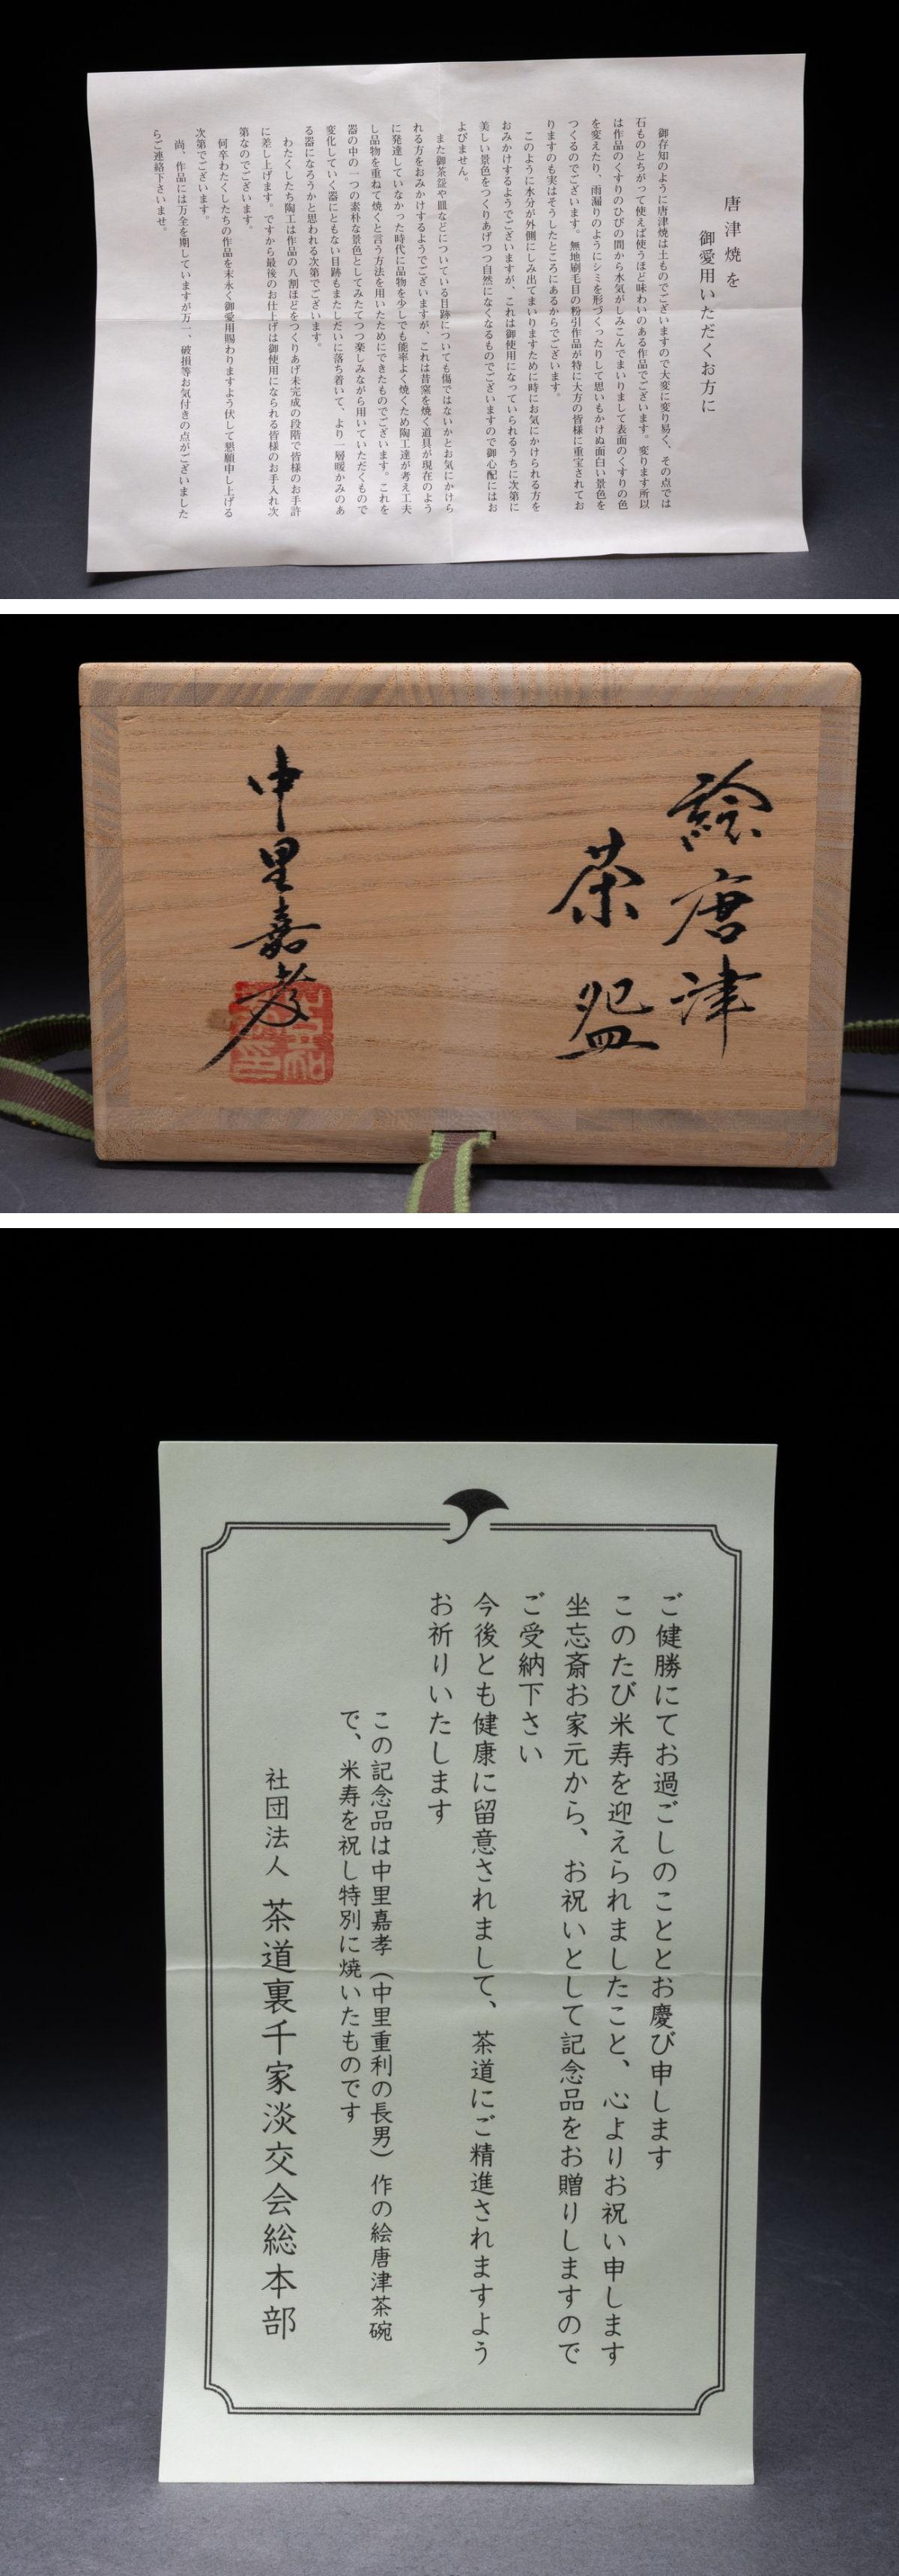 唐津焼を
御愛用いただくお方に
御存知のように唐津焼は土ものでございますので大変に変り易く、その点では
石ものとちがって使えば使うほど味わいのある作品でございます。変ります所以
は作品のくすりのひびの間から水気がしみこんでまいりまして表面のくすりの色
を変えたり、雨漏りのようにシミを形づくったりして思いもかけぬ面白い景色を
つくるのでございます。無地刷毛目の粉引作品が特に大方の皆様に重宝されてお
りますのも実はそうしたところにあるからでございます。
このように水分が外側にしみ出てまいりますために時にお気にかけられる方を
おみかけするようでございますが、これは御使用になっていられるうちに次第に
美しい景色をつくりあげつつ自然になくなるものでございますので御心配にはお
よびません。
また御茶盌や皿などについている目跡についても傷ではないかとお気にかけら
れる方をおみかけするようでございますが、これは昔窯を焼く道具が現在のよう
に発達していなかった時代に品物を少しでも能率よく焼くため陶工達が考え工夫
し品物を重ねて焼くと言う方法を用いたためにできたものでございます。これを
器の中の一つの素朴な景色としてみたてつつ楽しみながら用いていただくもので
変化していく器にともない目跡もまたしだいに落ち着いて、より一層暖かみのあ
る器になろうかと思われる次第でございます。
わたくしたち陶工は作品の八割ほどをつくりあげ未完成の段階で皆様のお手許
に差し上げます。ですから最後のお仕上げは御使用になられる皆様のお手入れ次
第なのでございます。
何卒わたくしたちの作品を末永く御愛用賜わりますよう伏して懇願申し上げる
次第でございます。
尚、作品には万全を期していますが万一、破損等お気付きの点がございました
らご連絡下さいませ。
絵唐津
茶盌
中里嘉孝
ご健勝にてお過ごしのこととお慶び申します
このたび米寿を迎えられましたこと、心よりお祝い申します
坐忘斎お家元から、お祝いとして記念品をお贈りしますので
ご受納下さい
今後とも健康に留意されまして、茶道にご精進されますよう
お祈りいたします
この記念品は中里嘉孝（中里重利の長男）作の絵唐津茶碗
で、米寿を祝し特別に焼いたものです
社団法人 茶道裏千家淡交会総本部